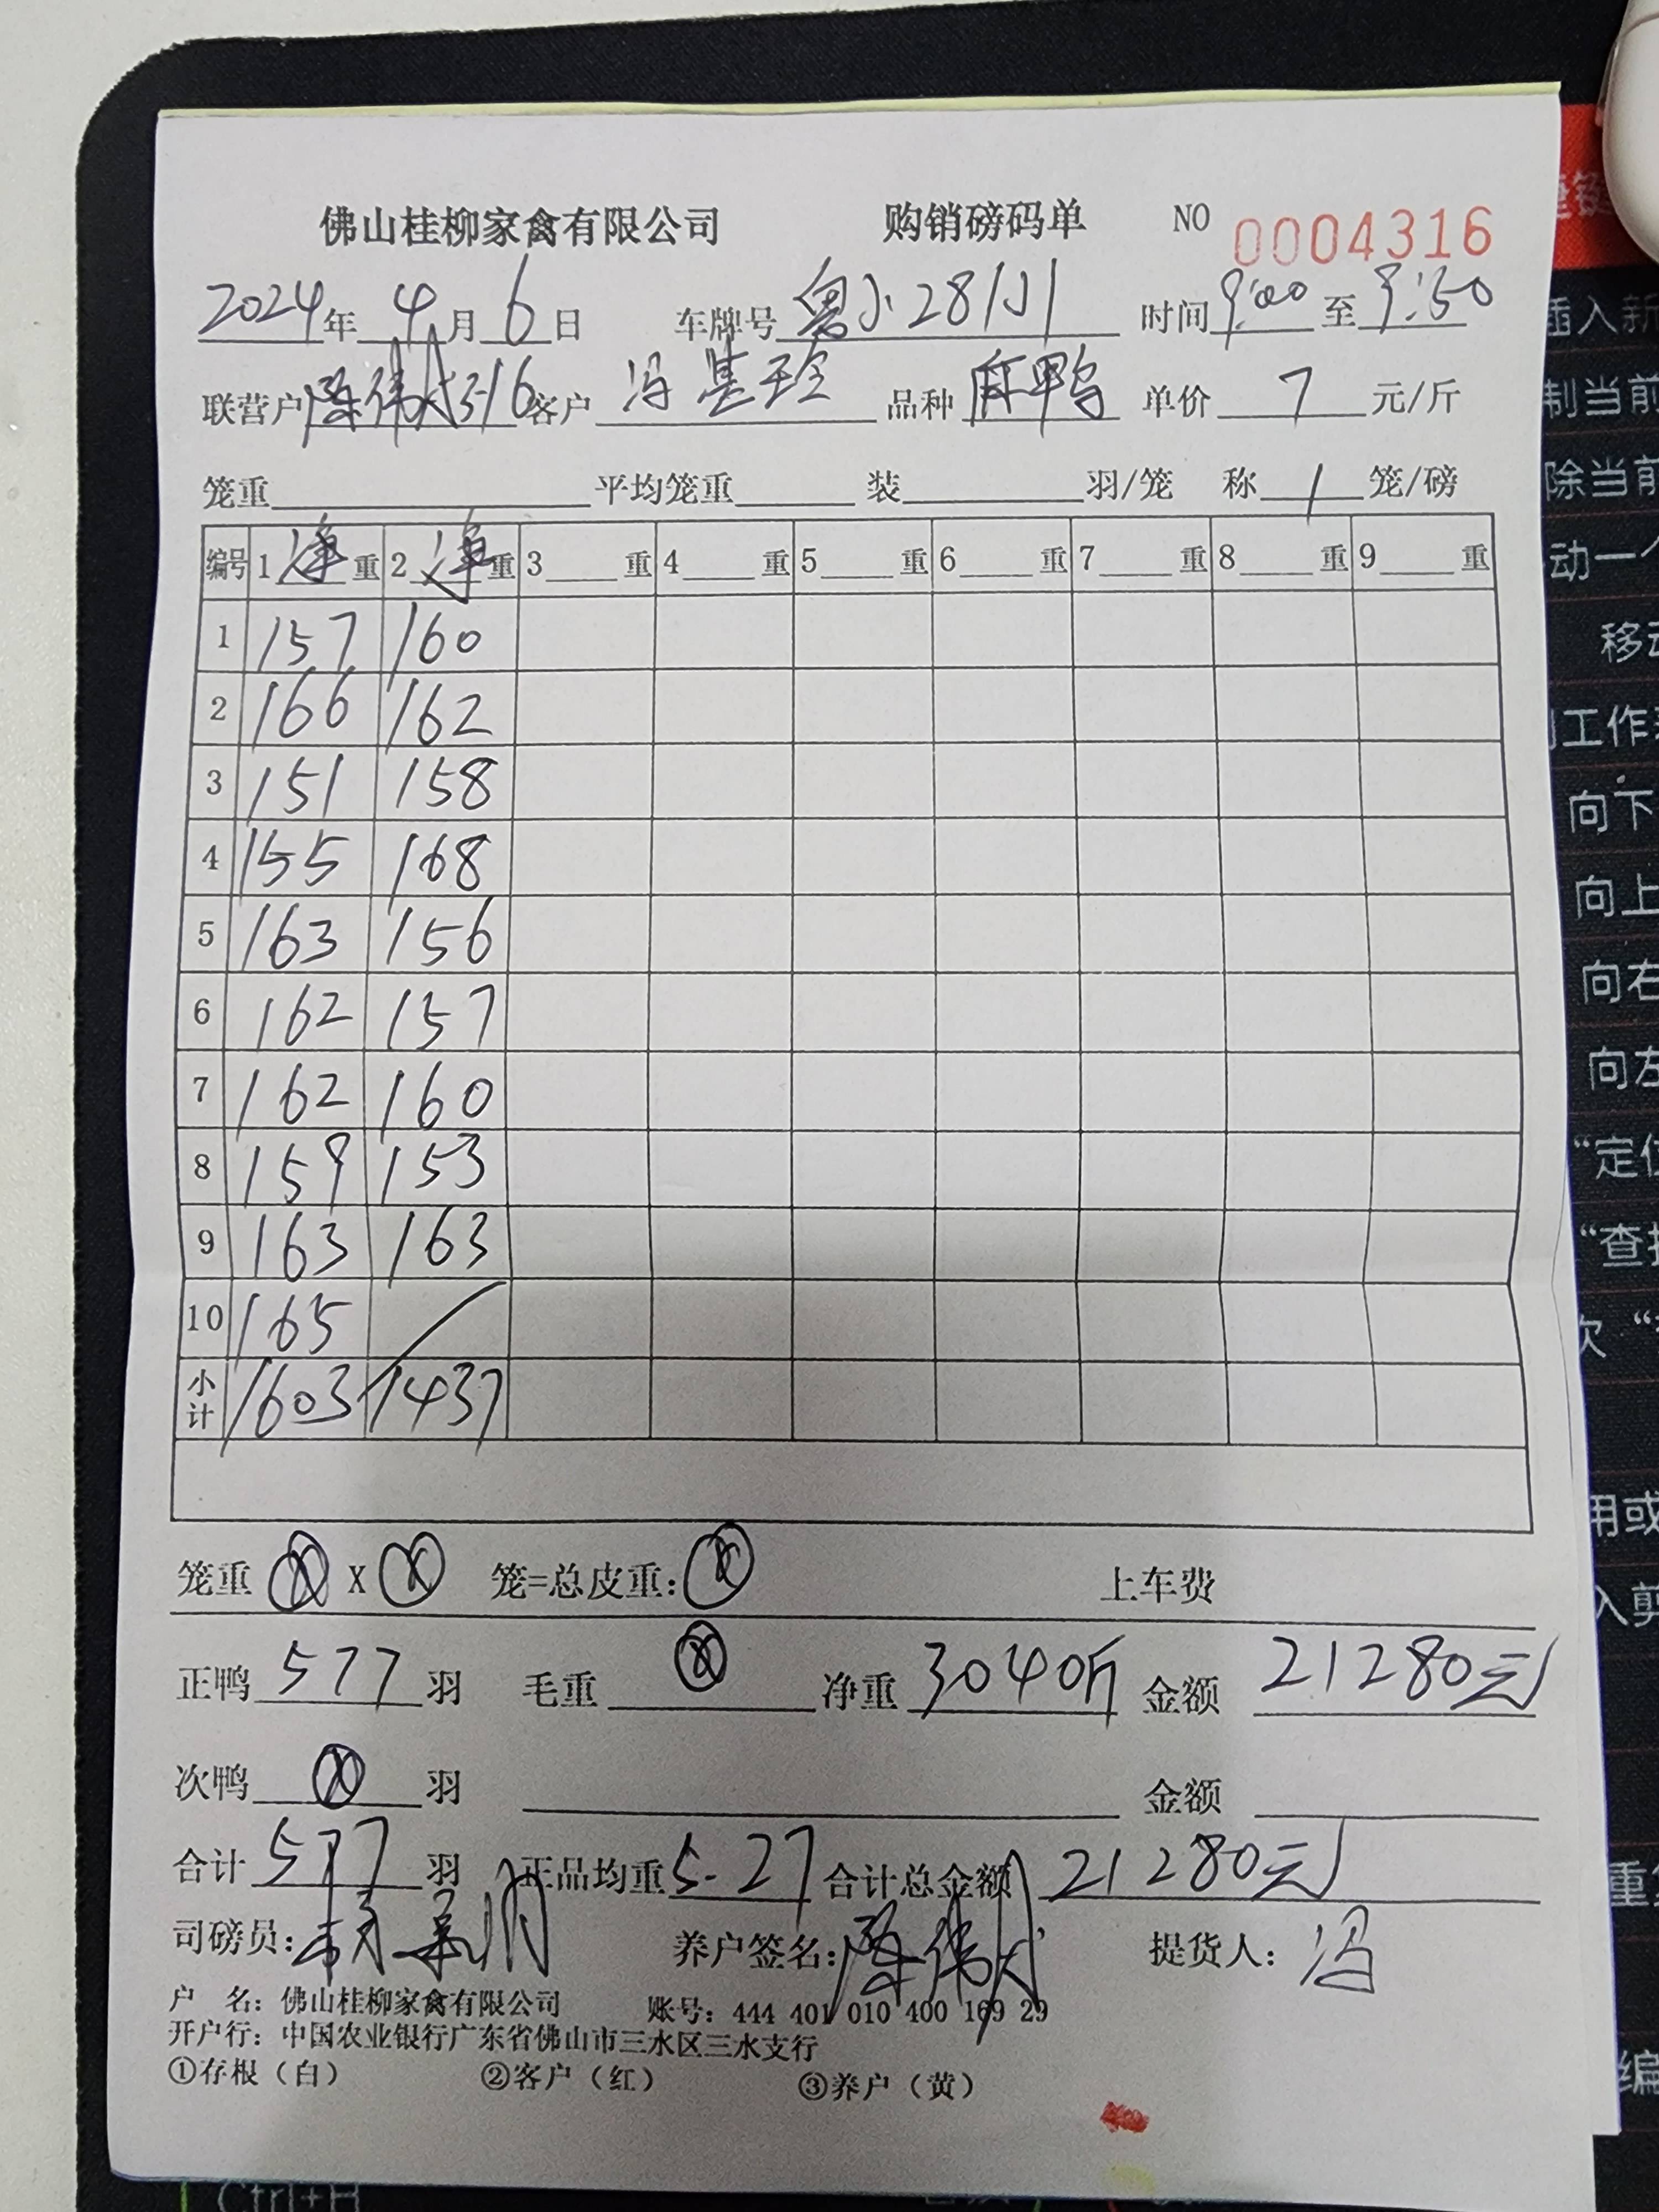 佛山桂柳家禽有限公司 购销磅码单 NO 0004316
2024年 4月 6日 车牌号 时间 9:00 至 9:50
联营户 陈伟 316 客户 冯基 品种 麻鸭 单价 7 元/斤
笼重 平均笼重 装 羽/笼 称 1 笼/磅
编号 1 净 重 2 净 重 3 重 4 重 5 重 6 重 7 重 8 重 9 重
1 157 160
2 166 162
3 151 158
4 155 168
5 163 156
6 162 157
7 162 160
8 159 153
9 163 163
10 165
小计 1603 1437
笼重 X 笼=总皮重： 上车费
正鸭 577 羽 毛重 净重 3040斤 金额 21280元
次鸭 羽 金额
合计 577 羽 正品均重 5.27 合计总金额 21280元
司磅员： 养户签名：陈伟 提货人：冯
户 名：佛山桂柳家禽有限公司 账号：444 401 010 400 169 29
开户行：中国农业银行广东省佛山市三水区三水支行
①存根（白） ②客户（红） ③养户（黄）
插入新
制当前
除当前
动一个
移动
工作表
向下
向上
向右
向左
“定位
“查找
次“
用或
入剪
重复
编
Ctrl+H